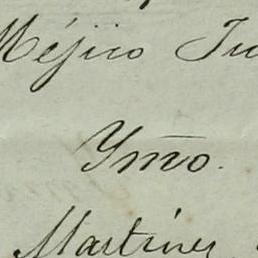 Méjico Ju
Ymo.
Martinez